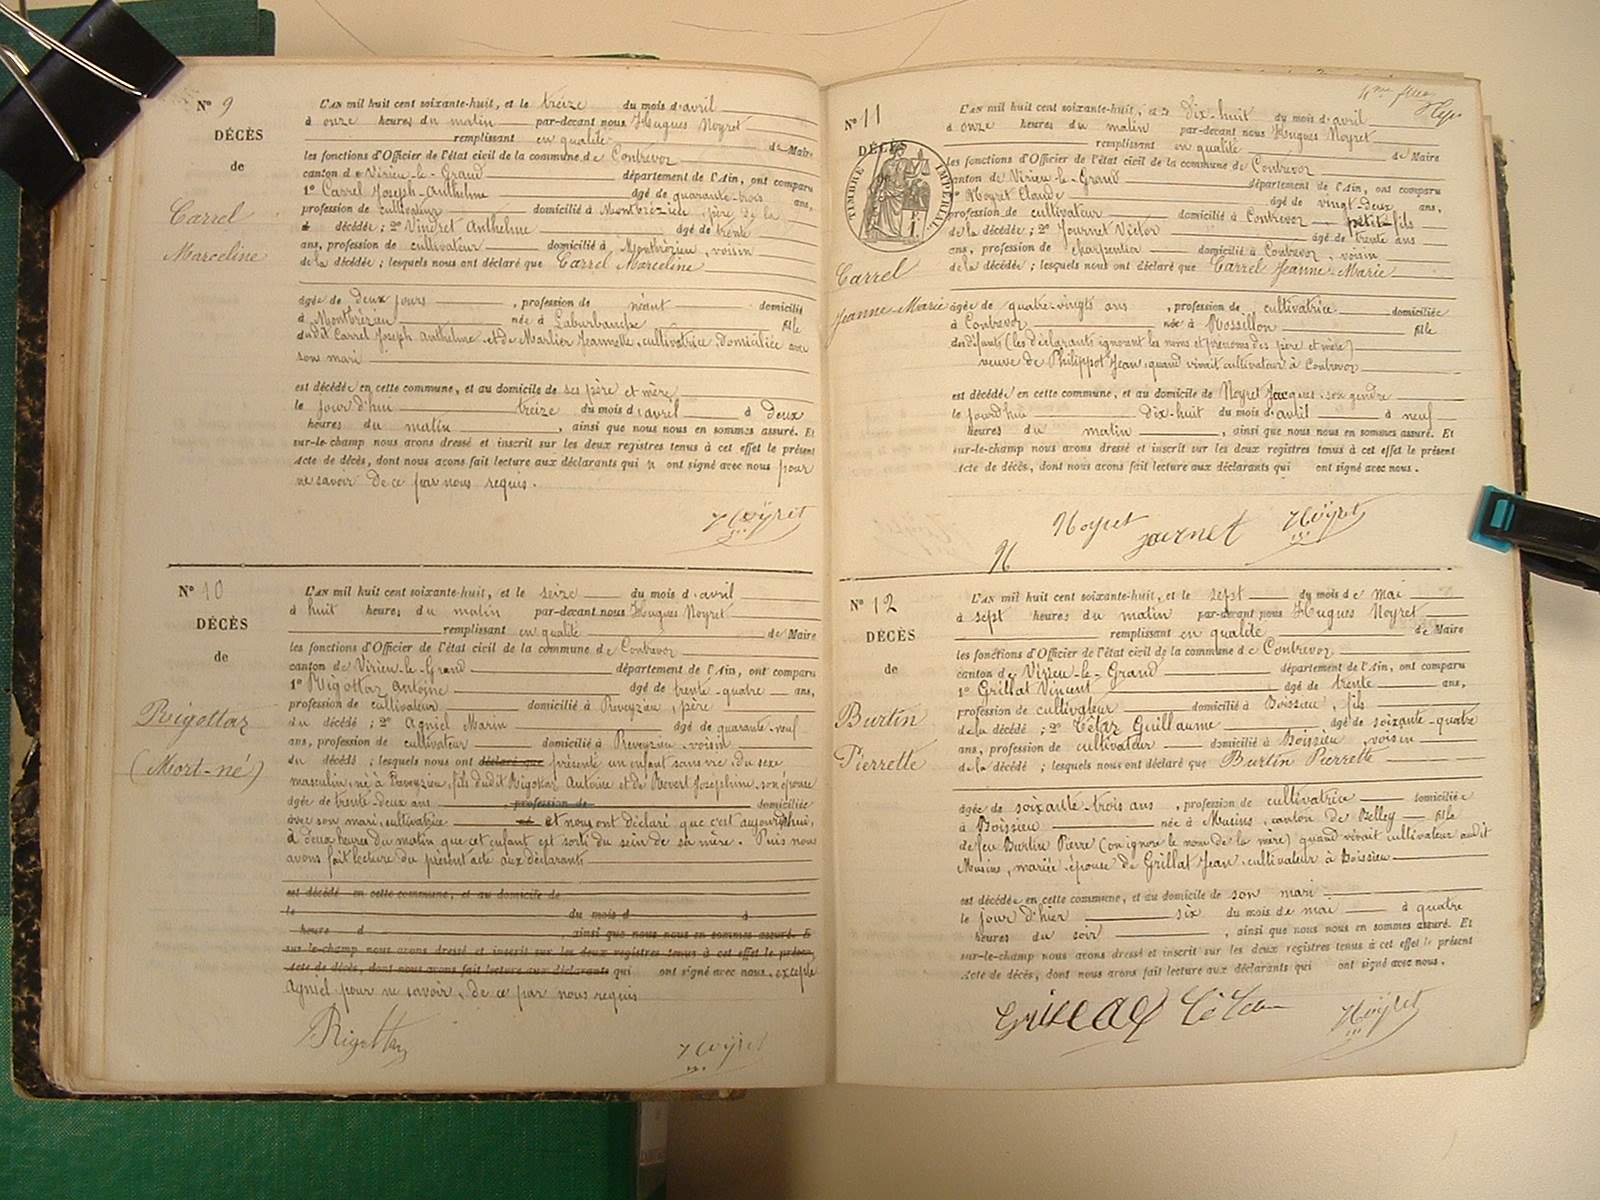 N° 9
DÉCÈS
de
Carrel
Marceline
L'AN mil huit cent soixante-huit, et le treize du mois d'avril
à onze heures du matin par-devant nous Hugues Noyret
remplissant en qualité de Maire
les fonctions d'Officier de l'état civil de la commune de Contrevoz
canton de Virieu-le-Grand département de l'Ain, ont comparu
1° Carrel Joseph-Anthelme âgé de quarante-trois ans,
profession de cultivateur domicilié à Montbrézieu, père de la
décédée ; 2° Vindret Anthelme âgé de trente
ans, profession de cultivateur domicilié à Montbrézieu, voisin
de la décédée ; lesquels nous ont déclaré que Carrel Marceline
âgée de deux jours, profession de néant domiciliée
à Montbrézieu née à Laburbanche fille
dudit Carrel Joseph Anthelme et de Marlier Jeannette, cultivatrice domiciliée avec
son mari
est décédée en cette commune, et au domicile de ses père et mère
le jour d'hui treize du mois d'avril à deux
heures du matin, ainsi que nous nous en sommes assuré. Et
sur-le-champ nous avons dressé et inscrit sur les deux registres tenus à cet effet le présent
Acte de décès, dont nous avons fait lecture aux déclarants qui n ont signé avec nous pour
ne savoir de ce par nous requis.
Noyret
N° 10
DÉCÈS
de
Rigottaz
(Mort-né)
L'AN mil huit cent soixante-huit, et le seize du mois d'avril
à huit heures du matin par-devant nous Hugues Noyret
remplissant en qualité de Maire
les fonctions d'Officier de l'état civil de la commune de Contrevoz
canton de Virieu-le-Grand département de l'Ain, ont comparu
1° Rigottaz Antoine âgé de trente-quatre ans,
profession de cultivateur domicilié à Preveyzieu, père
du décédé ; 2° Agniel Marin âgé de quarante-neuf
ans, profession de cultivateur domicilié à Preveyzieu, voisin
du décédé ; lesquels nous ont déclaré que présenté un enfant sans vie du sexe
masculin, né à Preveyzieu, fils dudit Rigottaz Antoine et de Revert Joséphine son épouse
âgée de trente-deux ans, profession de domiciliée
avec son mari, cultivatrice et nous ont déclaré que c'est aujourd'hui,
à deux heures du matin que cet enfant est sorti du sein de sa mère. Puis nous
avons fait lecture du présent acte aux déclarants
est décédé en cette commune, et au domicile de
le du mois d à
heure d, ainsi que nous nous en sommes assuré. E
sur-le-champ nous avons dressé et inscrit sur les deux registres tenus à cet effet le présen
Acte de décès, dont nous avons fait lecture aux déclarants qui ont signé avec nous, excepté
Agniel pour ne savoir, de ce par nous requis
Rigottaz Noyret
N° 11
DÉCÈS
TIMBRE IMPÉRIAL
Carrel
Jeanne-Marie
L'AN mil huit cent soixante-huit, et le dix-huit du mois d'avril
à onze heures du matin par-devant nous Hugues Noyret
remplissant en qualité de Maire
les fonctions d'Officier de l'état civil de la commune de Contrevoz
canton de Virieu-le-Grand département de l'Ain, ont comparu
1° Noyret Claude âgé de vingt-deux ans,
profession de cultivateur domicilié à Contrevoz petit-fils
de la décédée ; 2° Journet Victor âgé de trente ans
ans, profession de charpentier domicilié à Contrevoz, voisin
de la décédée ; lesquels nous ont déclaré que Carrel Jeanne-Marie
âgée de quatre-vingts ans, profession de cultivatrice domiciliée
à Contrevoz née à Rossillon fille
des défunts (les déclarants ignorent les noms et prénoms des père et mère)
veuve de Philippot Jean, quand vivait cultivateur à Contrevoz
est décédée en cette commune, et au domicile de Noyret Jacques son gendre
le jourd'hui dix-huit du mois d'avril à neuf
heures du matin, ainsi que nous nous en sommes assuré. Et
sur-le-champ nous avons dressé et inscrit sur les deux registres tenus à cet effet le présent
Acte de décès, dont nous avons fait lecture aux déclarants qui ont signé avec nous.
Noyret Journet Noyret
N° 12
DÉCÈS
de
Burtin
Pierrette
L'AN mil huit cent soixante-huit, et le sept du mois de mai
à sept heures du matin par-devant nous Hugues Noyret
remplissant en qualité de Maire
les fonctions d'Officier de l'état civil de la commune de Contrevoz
canton de Virieu-le-Grand département de l'Ain, ont comparu
1° Grillat Vincent âgé de trente ans,
profession de cultivateur domicilié à Boissieu, fils
de la décédée ; 2° Têtaz Guillaume âgé de soixante-quatre
ans, profession de cultivateur domicilié à Boissieu, voisin
de la décédée ; lesquels nous ont déclaré que Burtin Pierrette
âgée de soixante-trois ans, profession de cultivatrice domiciliée
à Boissieu née à Musins, canton de Belley fille
de feu Burtin Pierre (on ignore le nom de la mère) quand vivait cultivateur audit
Musins, mariée épouse de Grillat Jean, cultivateur à Boissieu
est décédée en cette commune, et au domicile de son mari
le jour d'hier six du mois de mai à quatre
heures du soir, ainsi que nous nous en sommes assuré. Et
sur-le-champ nous avons dressé et inscrit sur les deux registres tenus à cet effet le présent
Acte de décès, dont nous avons fait lecture aux déclarants qui ont signé avec nous.
Grillat Têtaz Noyret